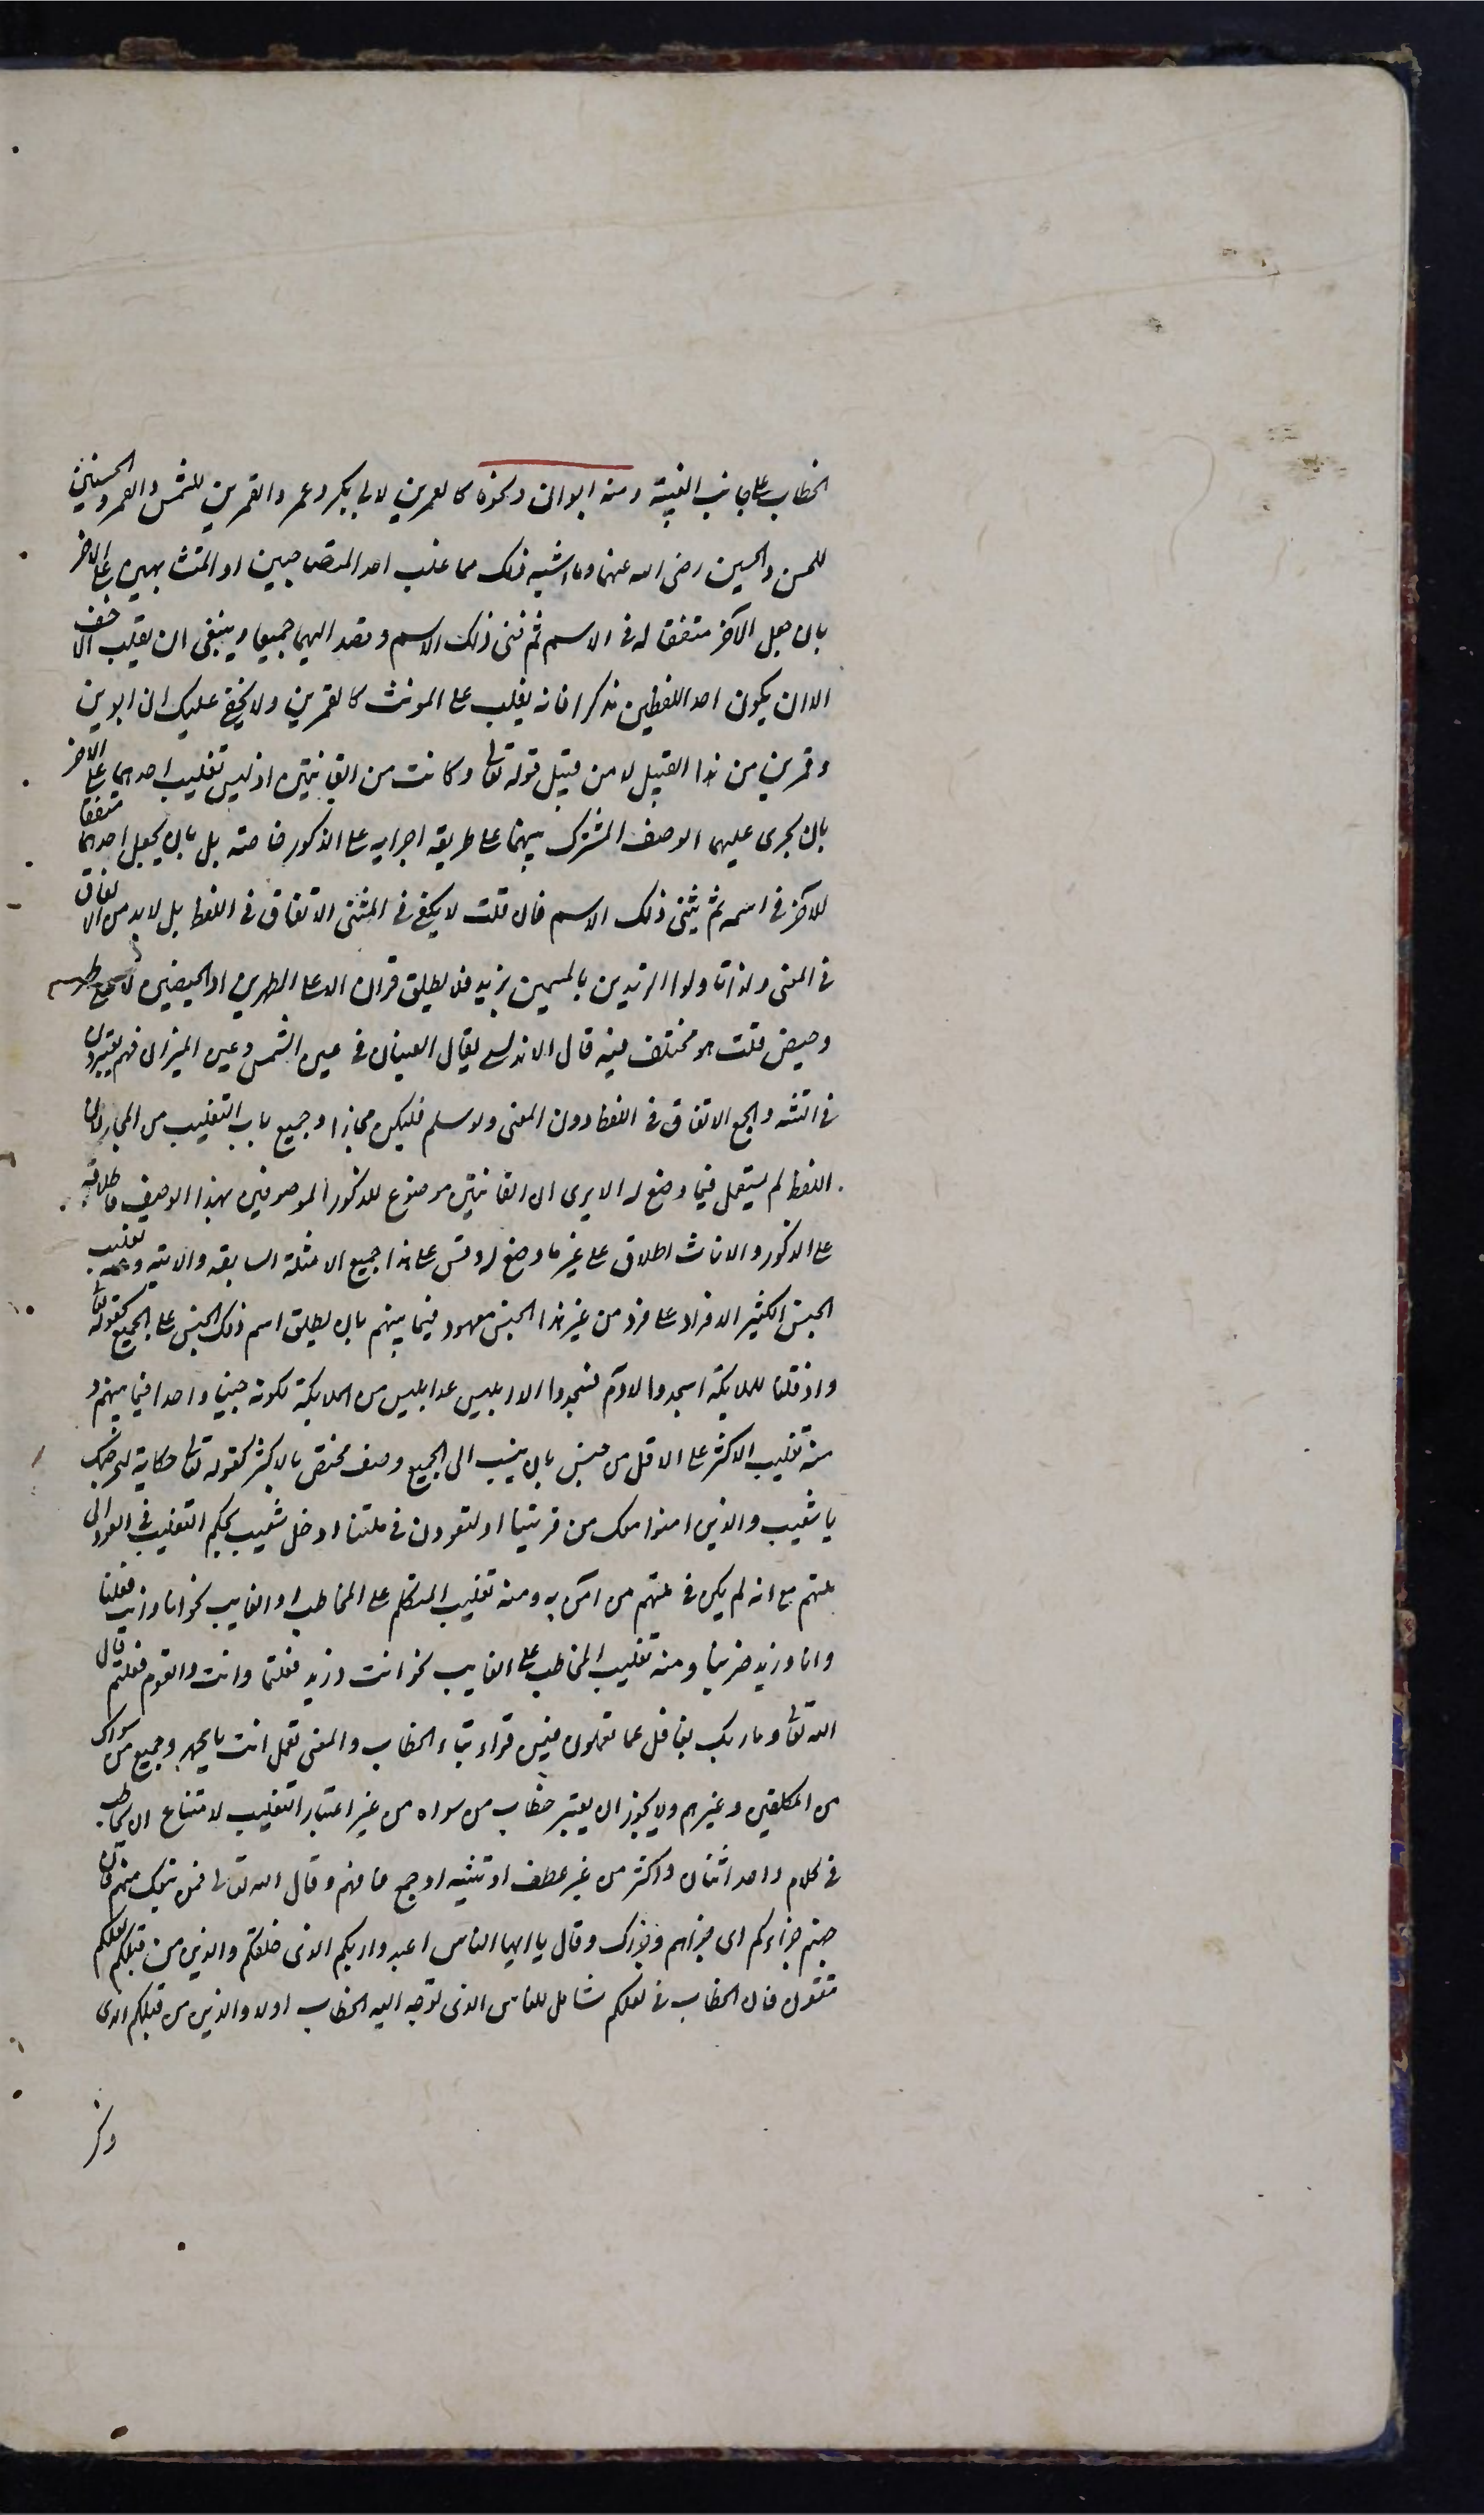 الخطاب على جانب الغيبة ومنه ابوان ونحوه كالعمرين لابى بكر وعمر والقمرين للشمس والقمر والحسنين
للحسن والحسين رضى الله عنهما وما اشبه ذلك مما غلب احد المتصاحبين او المتشابهين على الاخر
بان جعل الآخر متفقا له فى الاسم ثم ثنى ذلك الاسم وقصد اليهما جميعا وينبغى ان يغلب الاخف
الا ان يكون احد اللفظين مذكرا فانه يغلب على المونث كالقمرين ولا يخفى عليك ان ابوين
وقمرين من هذا القبيل لا من قبيل قوله تعالى وكانت من القانتين اذ ليس تغليب احدهما على الاخر
بان يجرى عليهما الوصف المشترك بينهما على طريقة اجرايه على الذكور خاصة بل بان يجعل احدهما متفقا
للآخر فى اسمه ثم يثنى ذلك الاسم فان قلت لا يكفى فى المثنى الاتفاق فى اللفظ بل لا بد من الاتفاق
فى المعنى ولذا تاولوا الزيدين بالمسمين بزيد فلا يطلق قران الا على الطهرين او الحيضين لا على طهر
وحيض قلت هو مختلف فيه قال الاندلسى يقال العينان فى عين الشمس وعين الميزان فهم يعتبرون
فى التثنية والجمع الاتفاق فى اللفظ دون المعنى ولو سلم فليكن مجازا وجميع باب التغليب من المجاز لان
اللفظ لم يستعمل فيما وضع له الا يرى ان القانتين موضوع للذكور الموصوفين بهذا الوصف فاطلاقه
على الذكور والاناث اطلاق على غير ما وضع له وقس على هذا جميع الامثلة السابقه والاتيه ومنه تغليب
الجنس الكثير الافراد على فرد من غير هذا الجنس معهود فيما بينهم بان يطلق اسم ذلك الجنس على الجميع كقوله تعالى
واذ قلنا للملايكة اسجدوا لادم فسجدوا الا ابليس عد ابليس من الملايكة لكونه جنيا واحدا فيما بينهم و
منه تغليب الاكثر على الاقل من جنس بان ينسب الى الجميع وصف مختص بالاكثر كقوله تعالى حكاية لنخرجنك
يا شعيب والذين امنوا معك من قريتنا او لتعودن فى ملتنا ادخل شعيب بحكم التغليب فى العود الى
ملتهم مع انه لم يكن فى ملتهم من آمن به ومنه تغليب المتكلم على المخاطب او الغايب نحو انا وانت فعلنا
وانا وزيد ضربنا ومنه تغليب المخاطب على الغايب نحو انت وزيد فعلتما وانت والقوم فعلتم قال
الله تعالى وما ربك بغافل عما تعملون فيمن قراء بتاء الخطاب والمعنى تعمل انت يا محمد وجميع من سواك
من المكلفين وغيرهم ولا يجوز ان يعتبر خطاب من سواه من غير اعتبار التغليب لامتناع ان يخاطب
فى كلام واحد اثنان واكثر من غير عطف او تثنيه او جمع فافهم وقال الله تعالى فمن تبعك منهم فان
جهنم جزاءكم اى جزاهم وجزاك وقال يا ايها الناس اعبدوا ربكم الذى خلقكم والذين من قبلكم لعلكم
تتقون فان الخطاب فى لعلكم شامل للناس الذى توجه اليه الخطاب اولا والذين من قبلكم الذى